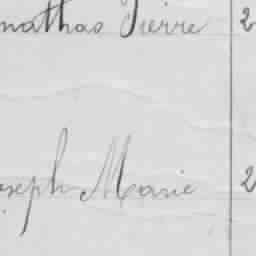 nathas Pierre 2
oseph Marie 2